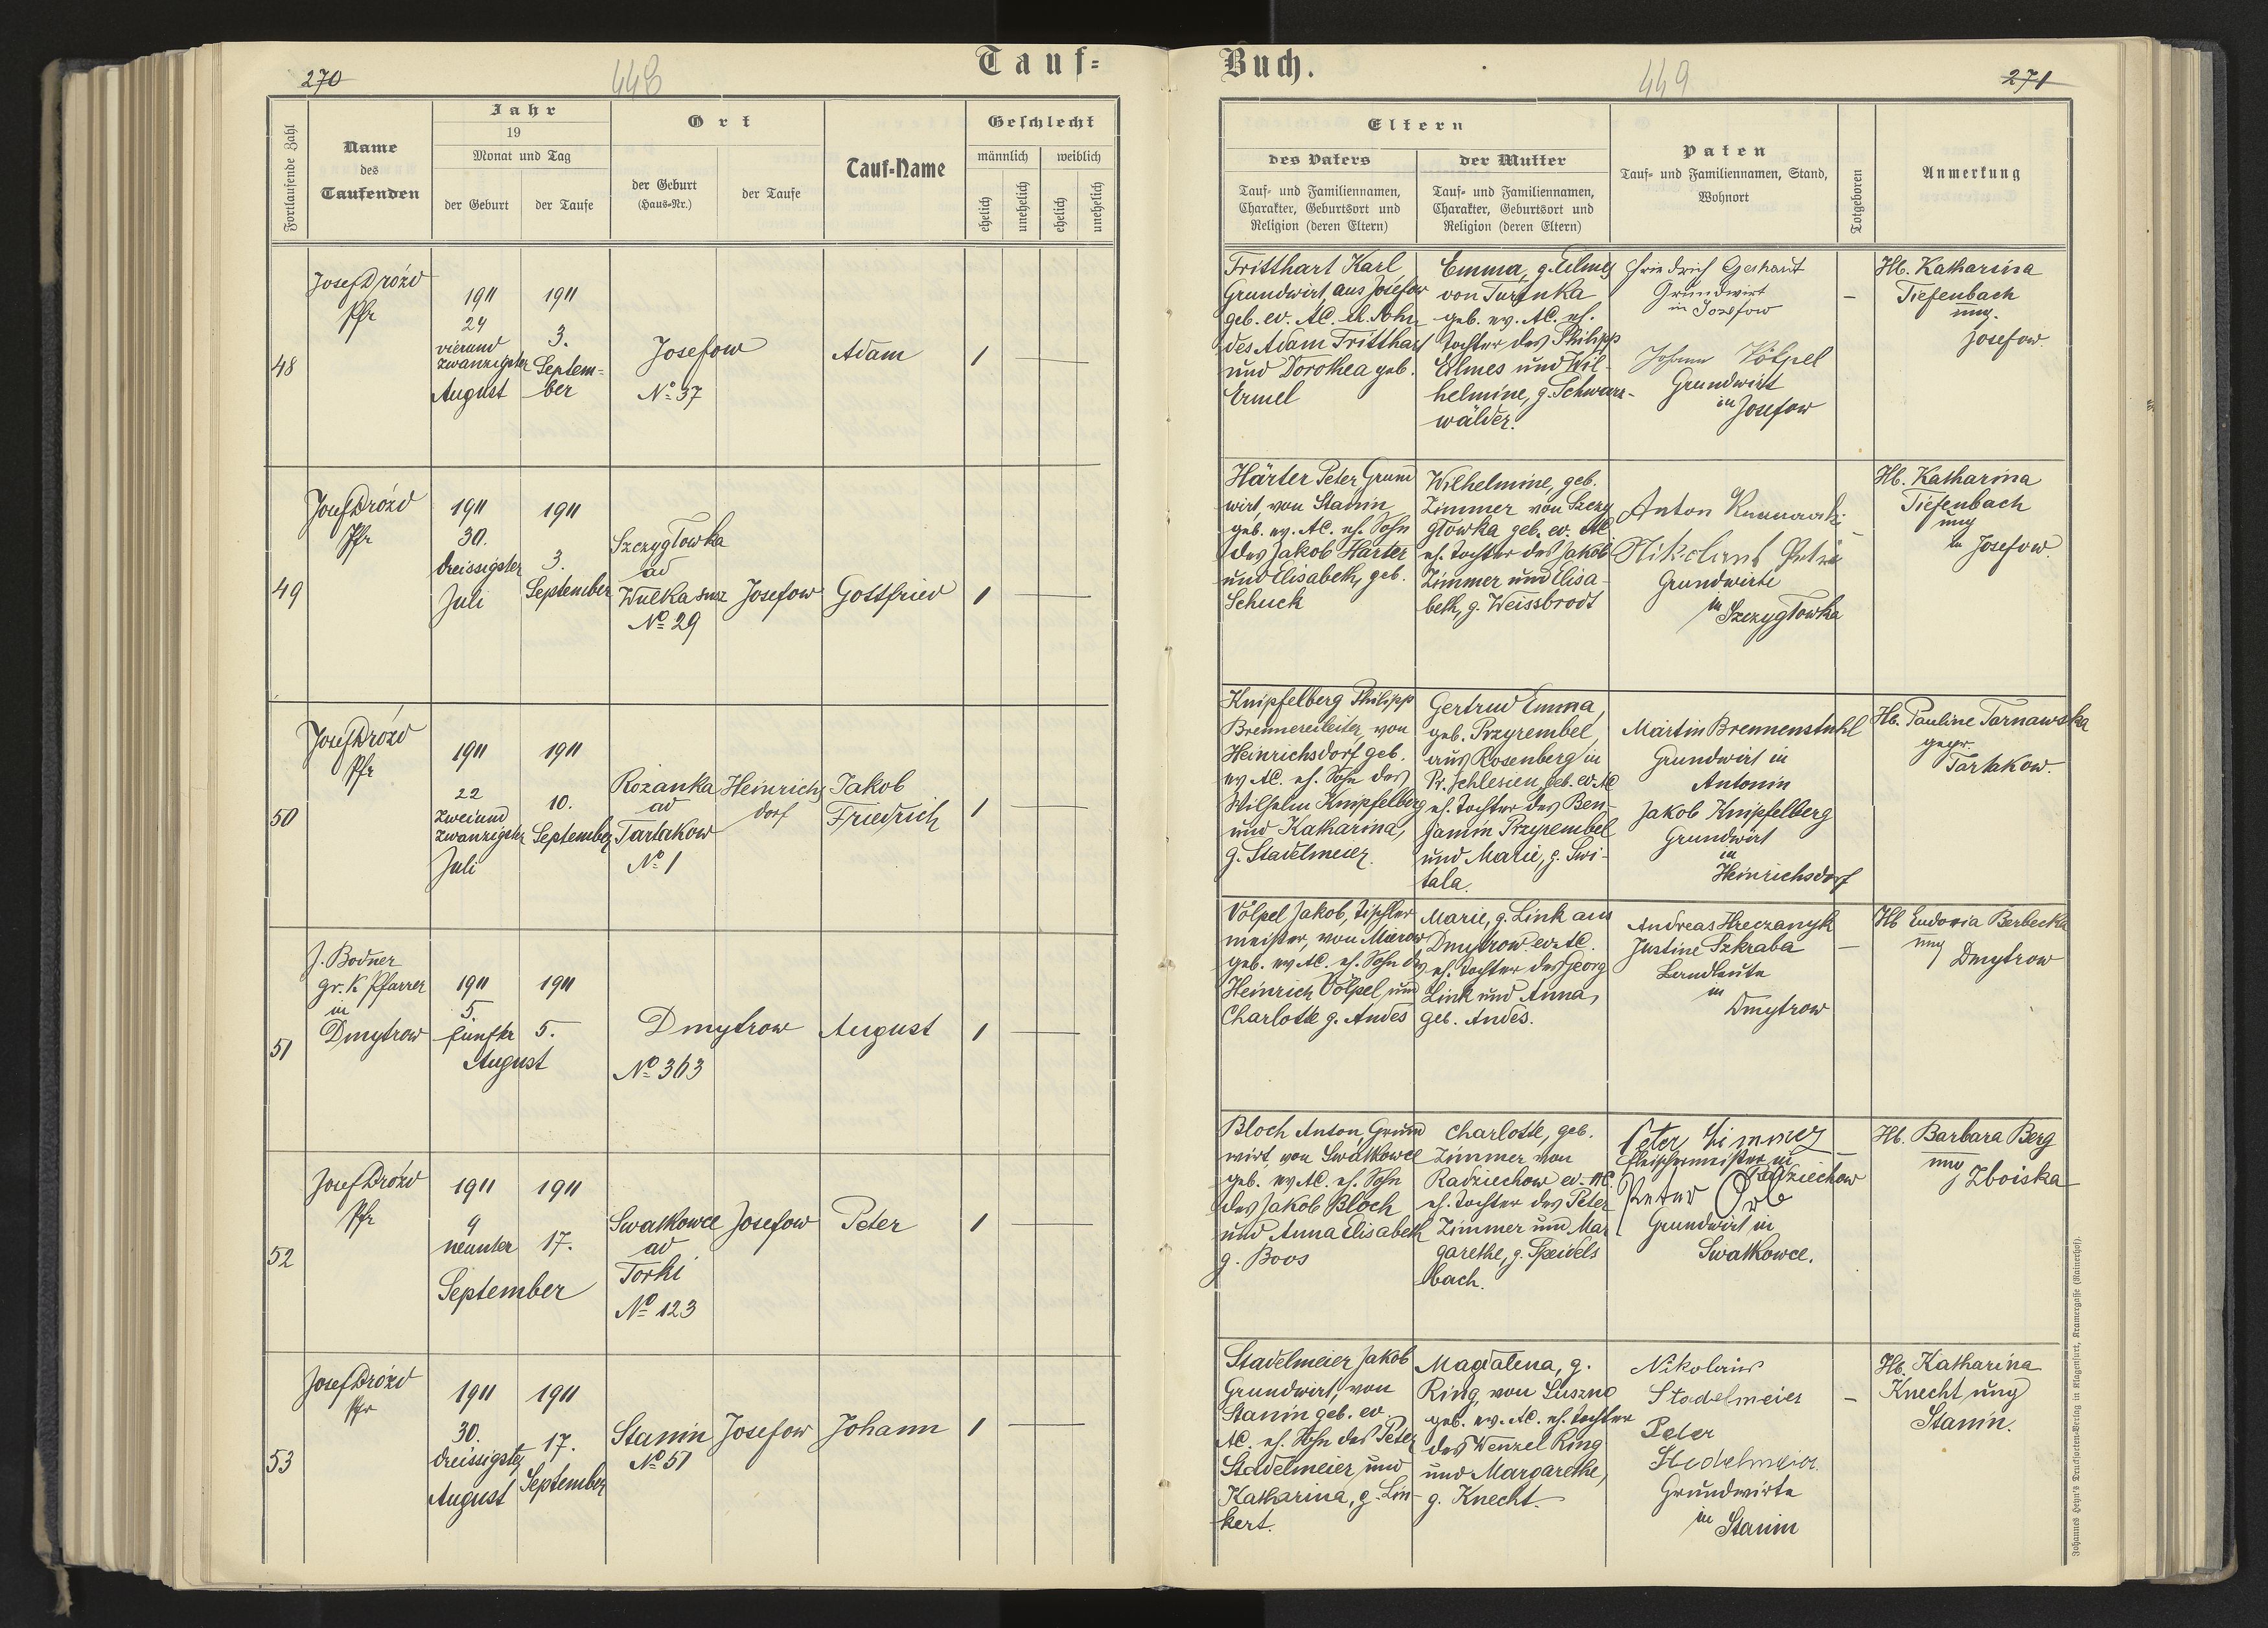 270
448
Tauf=
Fortlaufende Zahl
Name
des
Taufenden
Jahr
19
Monat und Tag
der Geburt
der Taufe
Ort
der Geburt
(Haus=Nr.)
der Taufe
Tauf=Name
Geschlecht
männlich
weiblich
ehelich
unehelich
ehelich
unehelich
48
Josef Drózd
Pfr
1911
24
vierund
zwanzigster
August
1911
3.
Septem=
ber
Josefow
No 37
Adam
1
49
Josef Drózd
Pfr
1911
30.
dreissigster
Juli
1911
3.
September
Szczygłowka
ad
Wulka susz
No 29
Josefow
Gottfried
1
50
Josef Drózd
Pfr
1911
22
zweiund
zwanzigster
Juli
1911
10.
September
Rozanka
ad
Tartakow
No 1
Heinrichs
dorf
Jakob
Friedrich
1
51
J. Bodner
gr. k Pfarrer
in
Dmytrow
1911
5.
fünfter
August
1911
5.
Dmytrow
No 363
August
1
52
Josef Drózd
Pfr
1911
9
neunter
September
1911
17.
Swatkowce
ad
Torki
No 123
Josefow
Peter
1
53
Josef Drózd
Pfr
1911
30.
dreissigster
August
1911
17.
September
Stanin
No 51
Josefow
Johann
1
Buch.
449
271
Eltern
des Vaters
Tauf= und Familiennamen,
Charakter, Geburtsort und
Religion (deren Eltern)
der Mutter
Tauf= und Familiennamen,
Charakter, Geburtsort und
Religion (deren Eltern)
Paten
Tauf= und Familiennamen, Stand,
Wohnort
Totgeboren
Anmerkung
Fritthart Karl
Grundwirt, aus Josefow
geb. ev. AC. eh. Sohn
des Adam Fritthart
und Dorothea geb.
Ermel
Emma, g. Eilmes
von Turynka
geb. ev. AC. eh.
Tochter des Philipp
Eilmes und Wil-
helmine, g. Schwarz-
wälder.
Friedrich
Grundwirt
in Josefow
Johann Völpel
Grundwirt
in Josefow
Hb. Katharina
Tiefenbach
ung.
Josefow.
Härter Peter Grund
wirt, von Stanin
geb. ev. AC. eh. Sohn
des Jakob Härter
und Elisabeth, geb.
Schuck
Wilhelmine, geb.
Zimmer von Szczy
głowka geb. ev. AC
eh. Tochter des Jakob
Zimmer und Elisa-
beth, g. Weissbrodt
Anton
Nikolaus
Grundwirte
in Szczygłowka
Hb. Katharina
Tiefenbach
ung
in Josefow.
Knipfelberg Philipp
Brennereileiter, von
Heinrichsdorf geb.
ev AC. eh. Sohn des
Wilhelm Knipfelberg
und Katharina,
g. Stadelmeier.
Gertrud Emma,
geb. Przyrembel,
aus Rosenberg in
Pr. Schlesien, geb. ev. AC
eh. Tochter des Ben-
jamin Przyrembel
und Marie, g. Swi-
tala.
Martin Brennenstuhl
Grundwirt in
Antonin
Jakob Knipfelberg
Grundwirt
in
Heinrichsdorf
Hb. Pauline Tarnawska
gepr.
Tartakow.
Völpel Jakob, Tischler
meister, von Mierow
geb. ev AC. eh. Sohn des
Heinrich Völpel und
Charlotte g. Andes
Marie, g. Link aus
Dmytrow ev. AC.
eh. Tochter des Georg
Link und Anna,
geb. Andes.
Andreas Hreczanyk
Justine Szkraba
Landleute
in
Dmytrow
Hb Eudoxia Berbecka
ung
Dmytrow
Bloch Anton, Grund
wirt, von Swatkowce
geb. ev AC. eh. Sohn
des Jakob Bloch
und Anna Elisabeth
g. Boos
Charlotte, geb.
Zimmer von
Radziechow ev. AC.
eh. Tochter des Peter
Zimmer und Mar
garethe, g. Speidels
bach.
Peter Zimmer
Fleischermeister in
Radziechow
Peter Orb
Grundwirt in
Swatkowce.
Hb. Barbara Berg
ung
Zboiska
Stadelmeier Jakob
Grundwirt, von
Stanin geb. ev.
AC. eh. Sohn des Peter
Stadelmeier, und
Katharina, g. Lin-
kert.
Magdalena, g.
Ring, von Suszno
geb. ev. AC. eh. Tochter
des Wenzel Ring
und Margarethe,
g. Knecht.
Nikolaus
Stadelmeier
Peter
Stadelmeier
Grundwirte
in Stanin
Hb. Katharina
Knecht ung
Stanin.
Johannes Heyn's Drucksorten=Verlag in Klagenfurt, Kramergasse (Rainerhof).